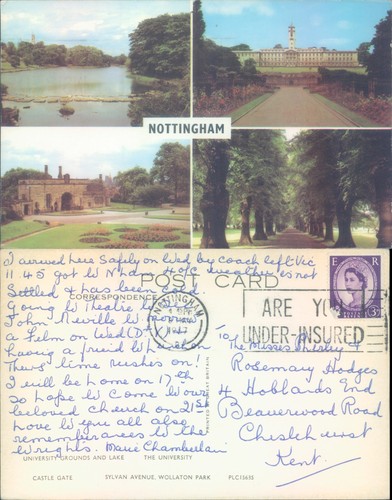 NOTTINGHAM
I arrived here Safely on Wed by coach left Vic
11 45 got to N ham 4 o/c weather is not
Settled & has been cold.
Going to Theatre to
John Neville to morrow
a Film on Wed (D.V.)
having a friend to lunch on
Thurs time rushes on!
I will be home on 17th
so hope to Come to our
beloved church on 21st
Love to you all also
remembrances to the
Wrights. Marie Chamberlain
POST CARD
CORRESPONDENCE
NOTTINGHAM
ARE YOU
UNDER-INSURED
E R
3D
PRINTED IN GREAT BRITAIN
To
The Misses &
Rosemary Hodges
4 Hoblands End
Beaverwood Road
Chislehurst
Kent.
UNIVERSITY GROUNDS AND LAKE THE UNIVERSITY
CASTLE GATE SYLVAN AVENUE, WOLLATON PARK PLC13655